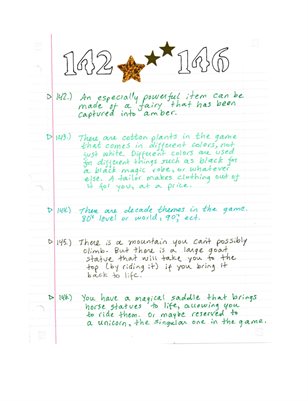 142 146
142.) An especially powerful item can be
made of a fairy that has been
captured into amber.
143.) There are cotton plants in the game
that comes in different colors, not
just white. Different colors are used
for different things such as black for
a black magic robe, or whatever
else. A tailor makes clothing out of
it for you, at a price.
144.) There are decade themes in the game.
80s level or world, 90s, ect.
145.) There is a mountain you cant possibly
climb. But there is a large goat
statue that will take you to the
top (by riding it) if you bring it
back to life.
146.) You have a magical saddle that brings
horse statues to life, allowing you
to ride them. Or maybe reserved to
a unicorn, the singular one in the game.